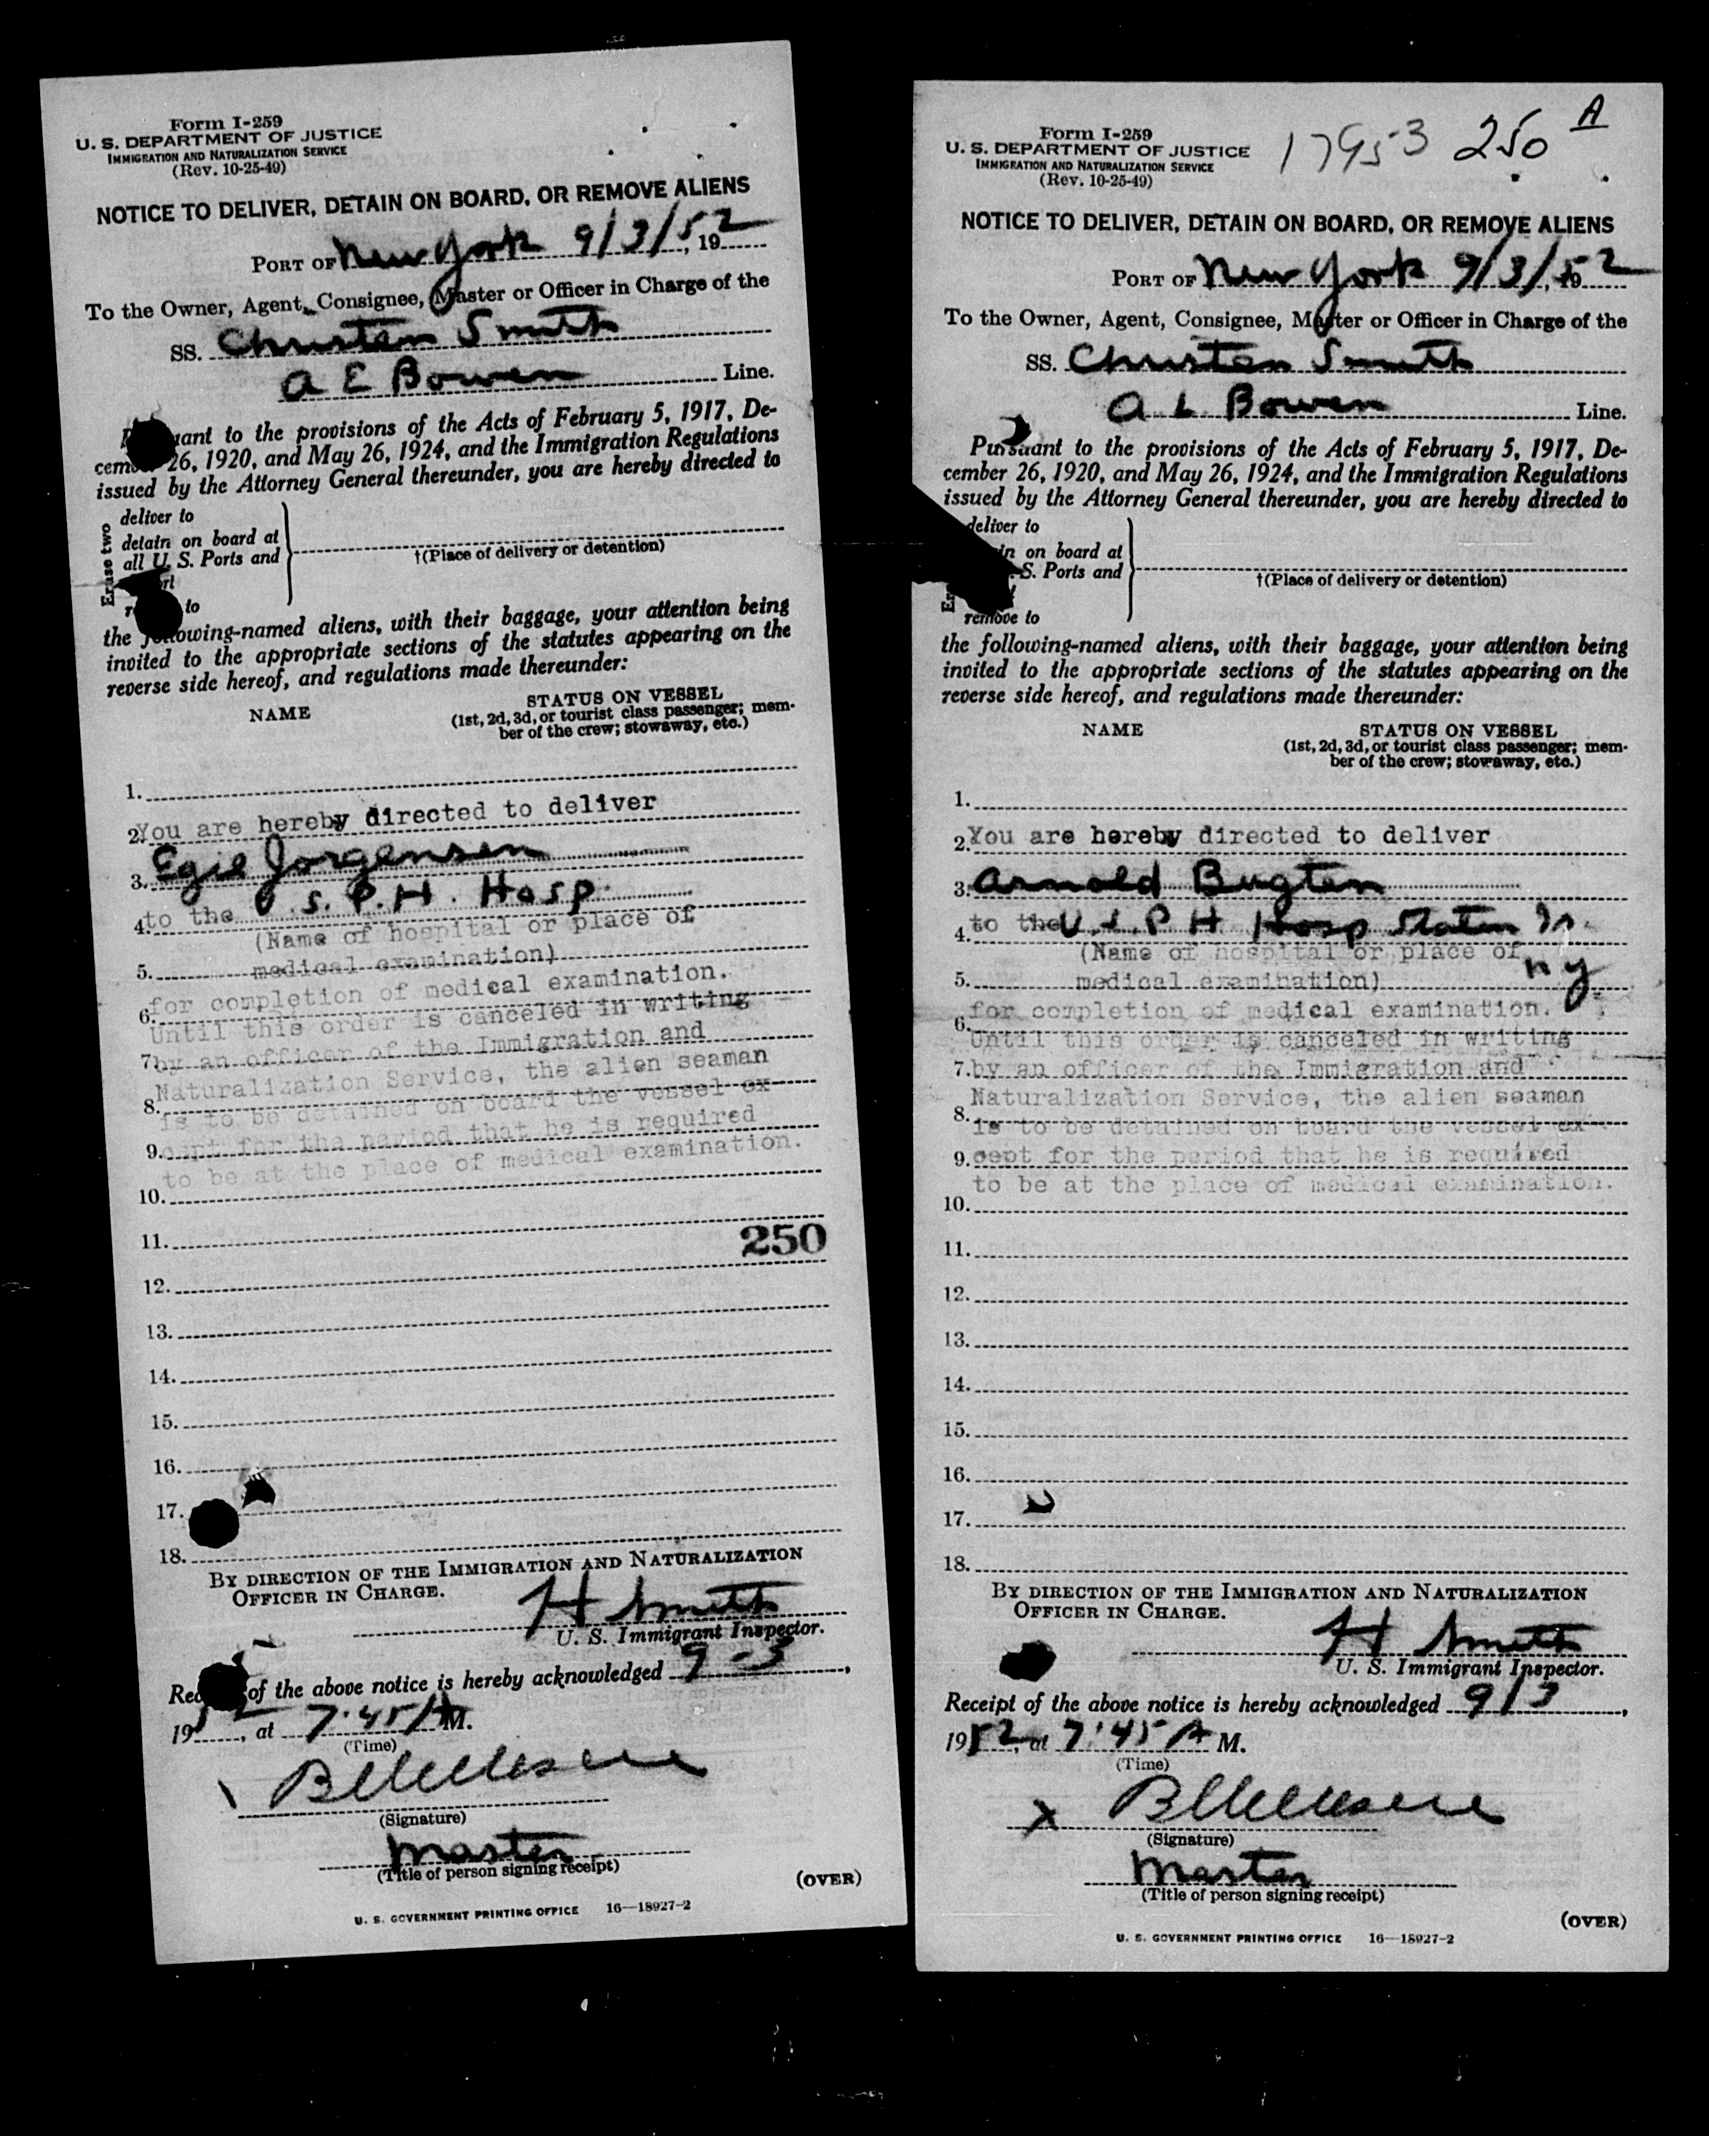 Form I-259
U. S. DEPARTMENT OF JUSTICE
IMMIGRATION AND NATURALIZATION SERVICE
(Rev. 10-25-49)
NOTICE TO DELIVER, DETAIN ON BOARD, OR REMOVE ALIENS
PORT OF New York 9/3/52, 19
To the Owner, Agent, Consignee, Master or Officer in Charge of the
SS. Christen Smith
A E Bowen Line.
uant to the provisions of the Acts of February 5, 1917, De-
cember 26, 1920, and May 26, 1924, and the Immigration Regulations
issued by the Attorney General thereunder, you are hereby directed to
Erase two
deliver to
detain on board at
all U. S. Ports and
†(Place of delivery or detention)
to
the following-named aliens, with their baggage, your attention being
invited to the appropriate sections of the statutes appearing on the
reverse side hereof, and regulations made thereunder:
NAME
STATUS ON VESSEL
(1st, 2d, 3d, or tourist class passenger; mem-
ber of the crew; stowaway, etc.)
1.
2. You are hereby directed to deliver
3. Egil Jorgensen
4. to the U.S.P.H. Hosp.
(Name of hospital or place of
5. medical examination)
for completion of medical examination.
6. Until this order is canceled in writing
7. by an officer of the Immigration and
Naturalization Service, the alien seaman
8. is to be detained on board the vessel ex-
9. cept for the period that he is required
to be at the place of medical examination.
10.
11.
250
12.
13.
14.
15.
16.
17.
18.
BY DIRECTION OF THE IMMIGRATION AND NATURALIZATION
OFFICER IN CHARGE.
H Smith
U. S. Immigrant Inspector.
Rec of the above notice is hereby acknowledged 9-3,
1952, at 7:45 A M.
(Time)
(Signature)
Master
(Title of person signing receipt)
(OVER)
U. S. GOVERNMENT PRINTING OFFICE 16—18927-2
17953 250 A
Form I-259
U. S. DEPARTMENT OF JUSTICE
IMMIGRATION AND NATURALIZATION SERVICE
(Rev. 10-25-49)
NOTICE TO DELIVER, DETAIN ON BOARD, OR REMOVE ALIENS
PORT OF New York 9/3/52, 19
To the Owner, Agent, Consignee, Master or Officer in Charge of the
SS. Christen Smith
A L Bowen Line.
Pursuant to the provisions of the Acts of February 5, 1917, De-
cember 26, 1920, and May 26, 1924, and the Immigration Regulations
issued by the Attorney General thereunder, you are hereby directed to
deliver to
in on board at
S. Ports and
†(Place of delivery or detention)
remove to
the following-named aliens, with their baggage, your attention being
invited to the appropriate sections of the statutes appearing on the
reverse side hereof, and regulations made thereunder:
NAME
STATUS ON VESSEL
(1st, 2d, 3d, or tourist class passenger; mem-
ber of the crew; stowaway, etc.)
1.
2. You are hereby directed to deliver
3. Arnold Bugten
4. to the U.S.P H Hosp Staten Is.
(Name of hospital or place of
N Y.
5. medical examination)
for completion of medical examination.
6. Until this order is canceled in writing
7. by an officer of the Immigration and
Naturalization Service, the alien seaman
8. is to be detained on board the vessel ex-
9. cept for the period that he is required
to be at the place of medical examination.
10.
11.
12.
13.
14.
15.
16.
17.
18.
BY DIRECTION OF THE IMMIGRATION AND NATURALIZATION
OFFICER IN CHARGE.
H Smith
U. S. Immigrant Inspector.
Receipt of the above notice is hereby acknowledged 9/3,
1952, at 7:45 A M.
(Time)
X
(Signature)
Master
(Title of person signing receipt)
(OVER)
U. S. GOVERNMENT PRINTING OFFICE 16—18927-2